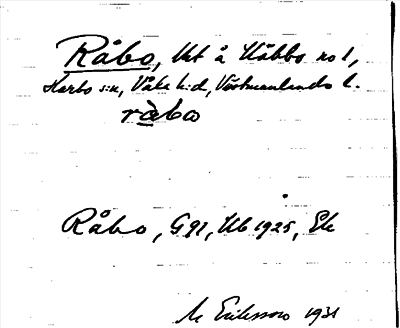 Råbo, Ut å Kåbbo no 1,
Karbo s:n, Våla h:d, Västmanlands l.
råbo
Råbo, G 91, Ub 1925, Ek
M Eriksson 1931